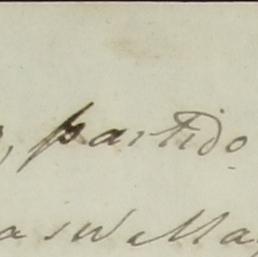 , partido
a su Ma